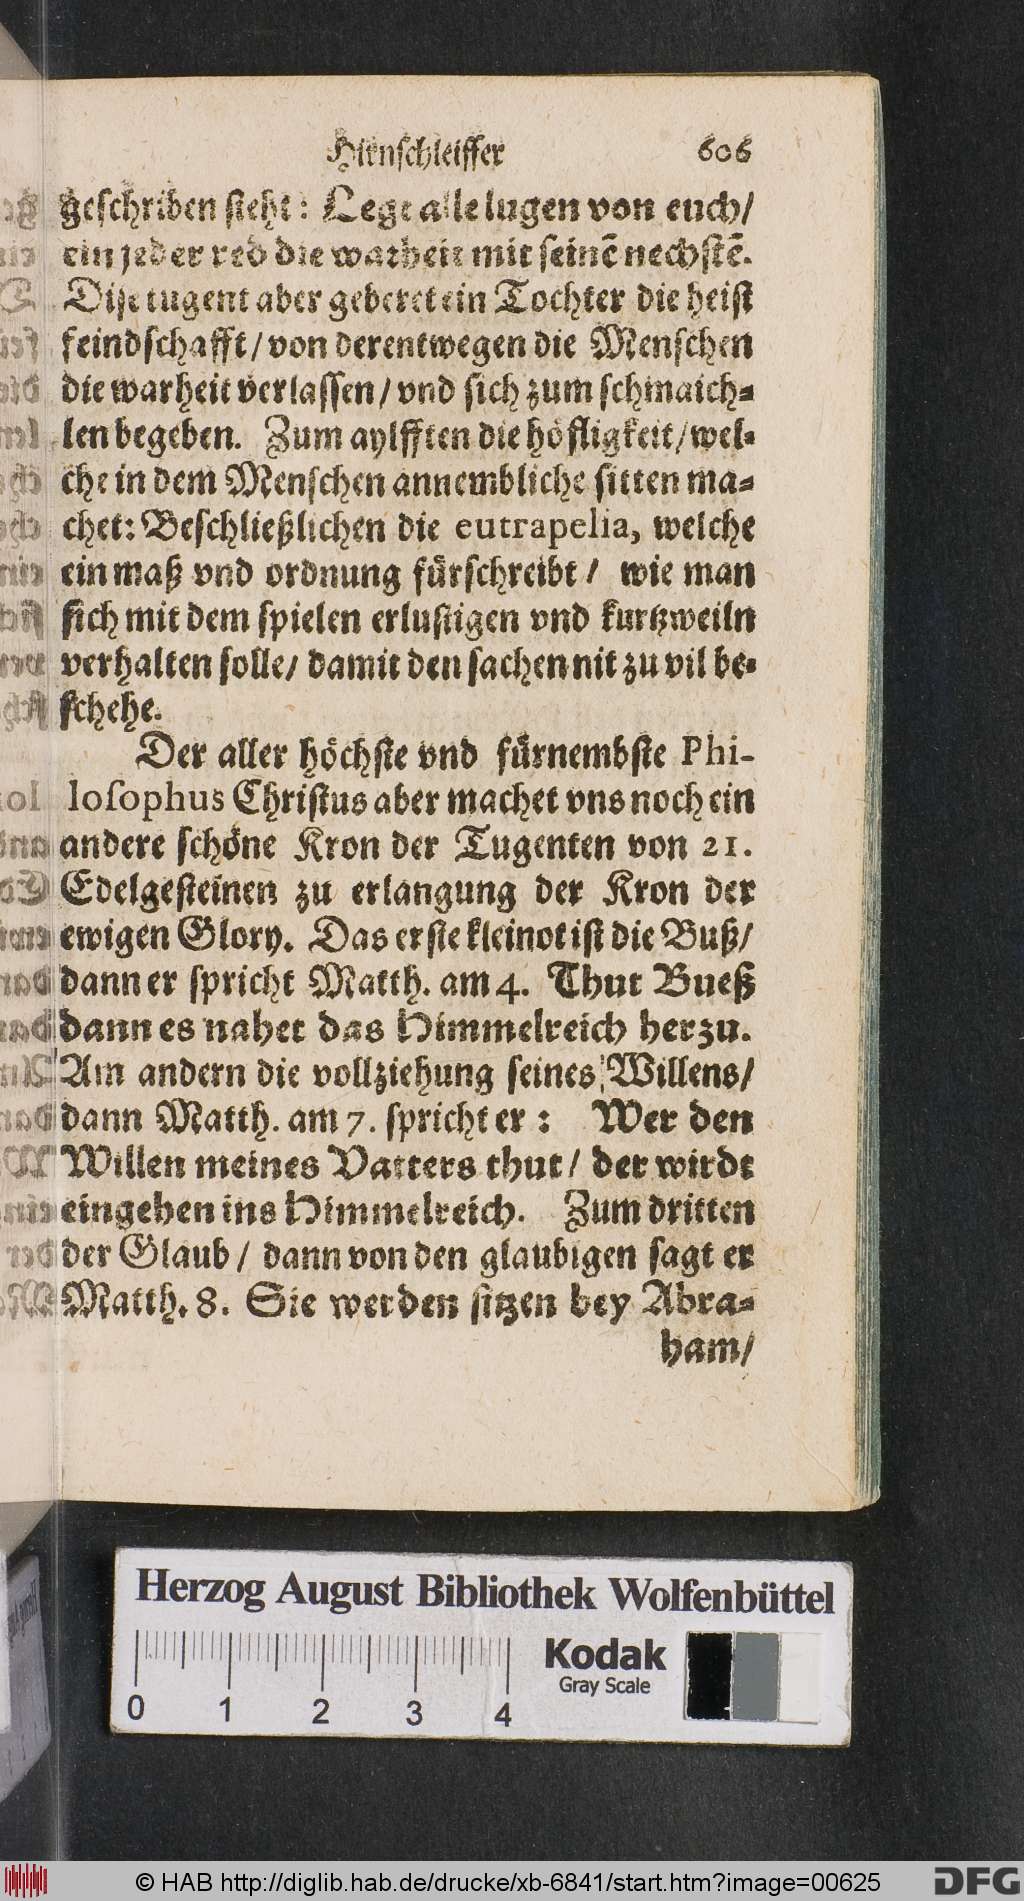 Hirnschleiffer 606
geschriben steht: Legt alle lugen von euch/
ein jeder red die warheit mit seinē nechstē.
Dise tugent aber geberet ein Tochter die heist
feindschafft/ von derentwegen die Menschen
die warheit verlassen/ vnd sich zum schmaich-
len begeben. Zum aylfften die höfligkeit/ wel-
che in dem Menschen annembliche sitten ma-
chet: Beschließlichen die eutrapelia, welche
ein maß vnd ordnung fürschreibt/ wie man
sich mit dem spielen erlustigen vnd kurtzweiln
verhalten solle/ damit den sachen nit zu vil be-
schehe.
Der aller höchste vnd fürnembste Phi-
losophus Christus aber machet vns noch ein
andere schöne Kron der Tugenten von 21.
Edelgesteinen zu erlangung der Kron der
ewigen Glory. Das erste kleinot ist die Buß/
dann er spricht Matth. am 4. Thut Bueß
dann es nahet das Himmelreich herzu.
Am andern die vollziehung seines Willens/
dann Matth. am 7. spricht er: Wer den
Willen meines Vatters thut/ der wirdt
eingehen ins Himmelreich. Zum dritten
der Glaub/ dann von den glaubigen sagt er
Matth. 8. Sie werden sitzen bey Abra-
ham/
Herzog August Bibliothek Wolfenbüttel
Kodak
Gray Scale
0 1 2 3 4
© HAB http://diglib.hab.de/drucke/xb-6841/start.htm?image=00625
DFG